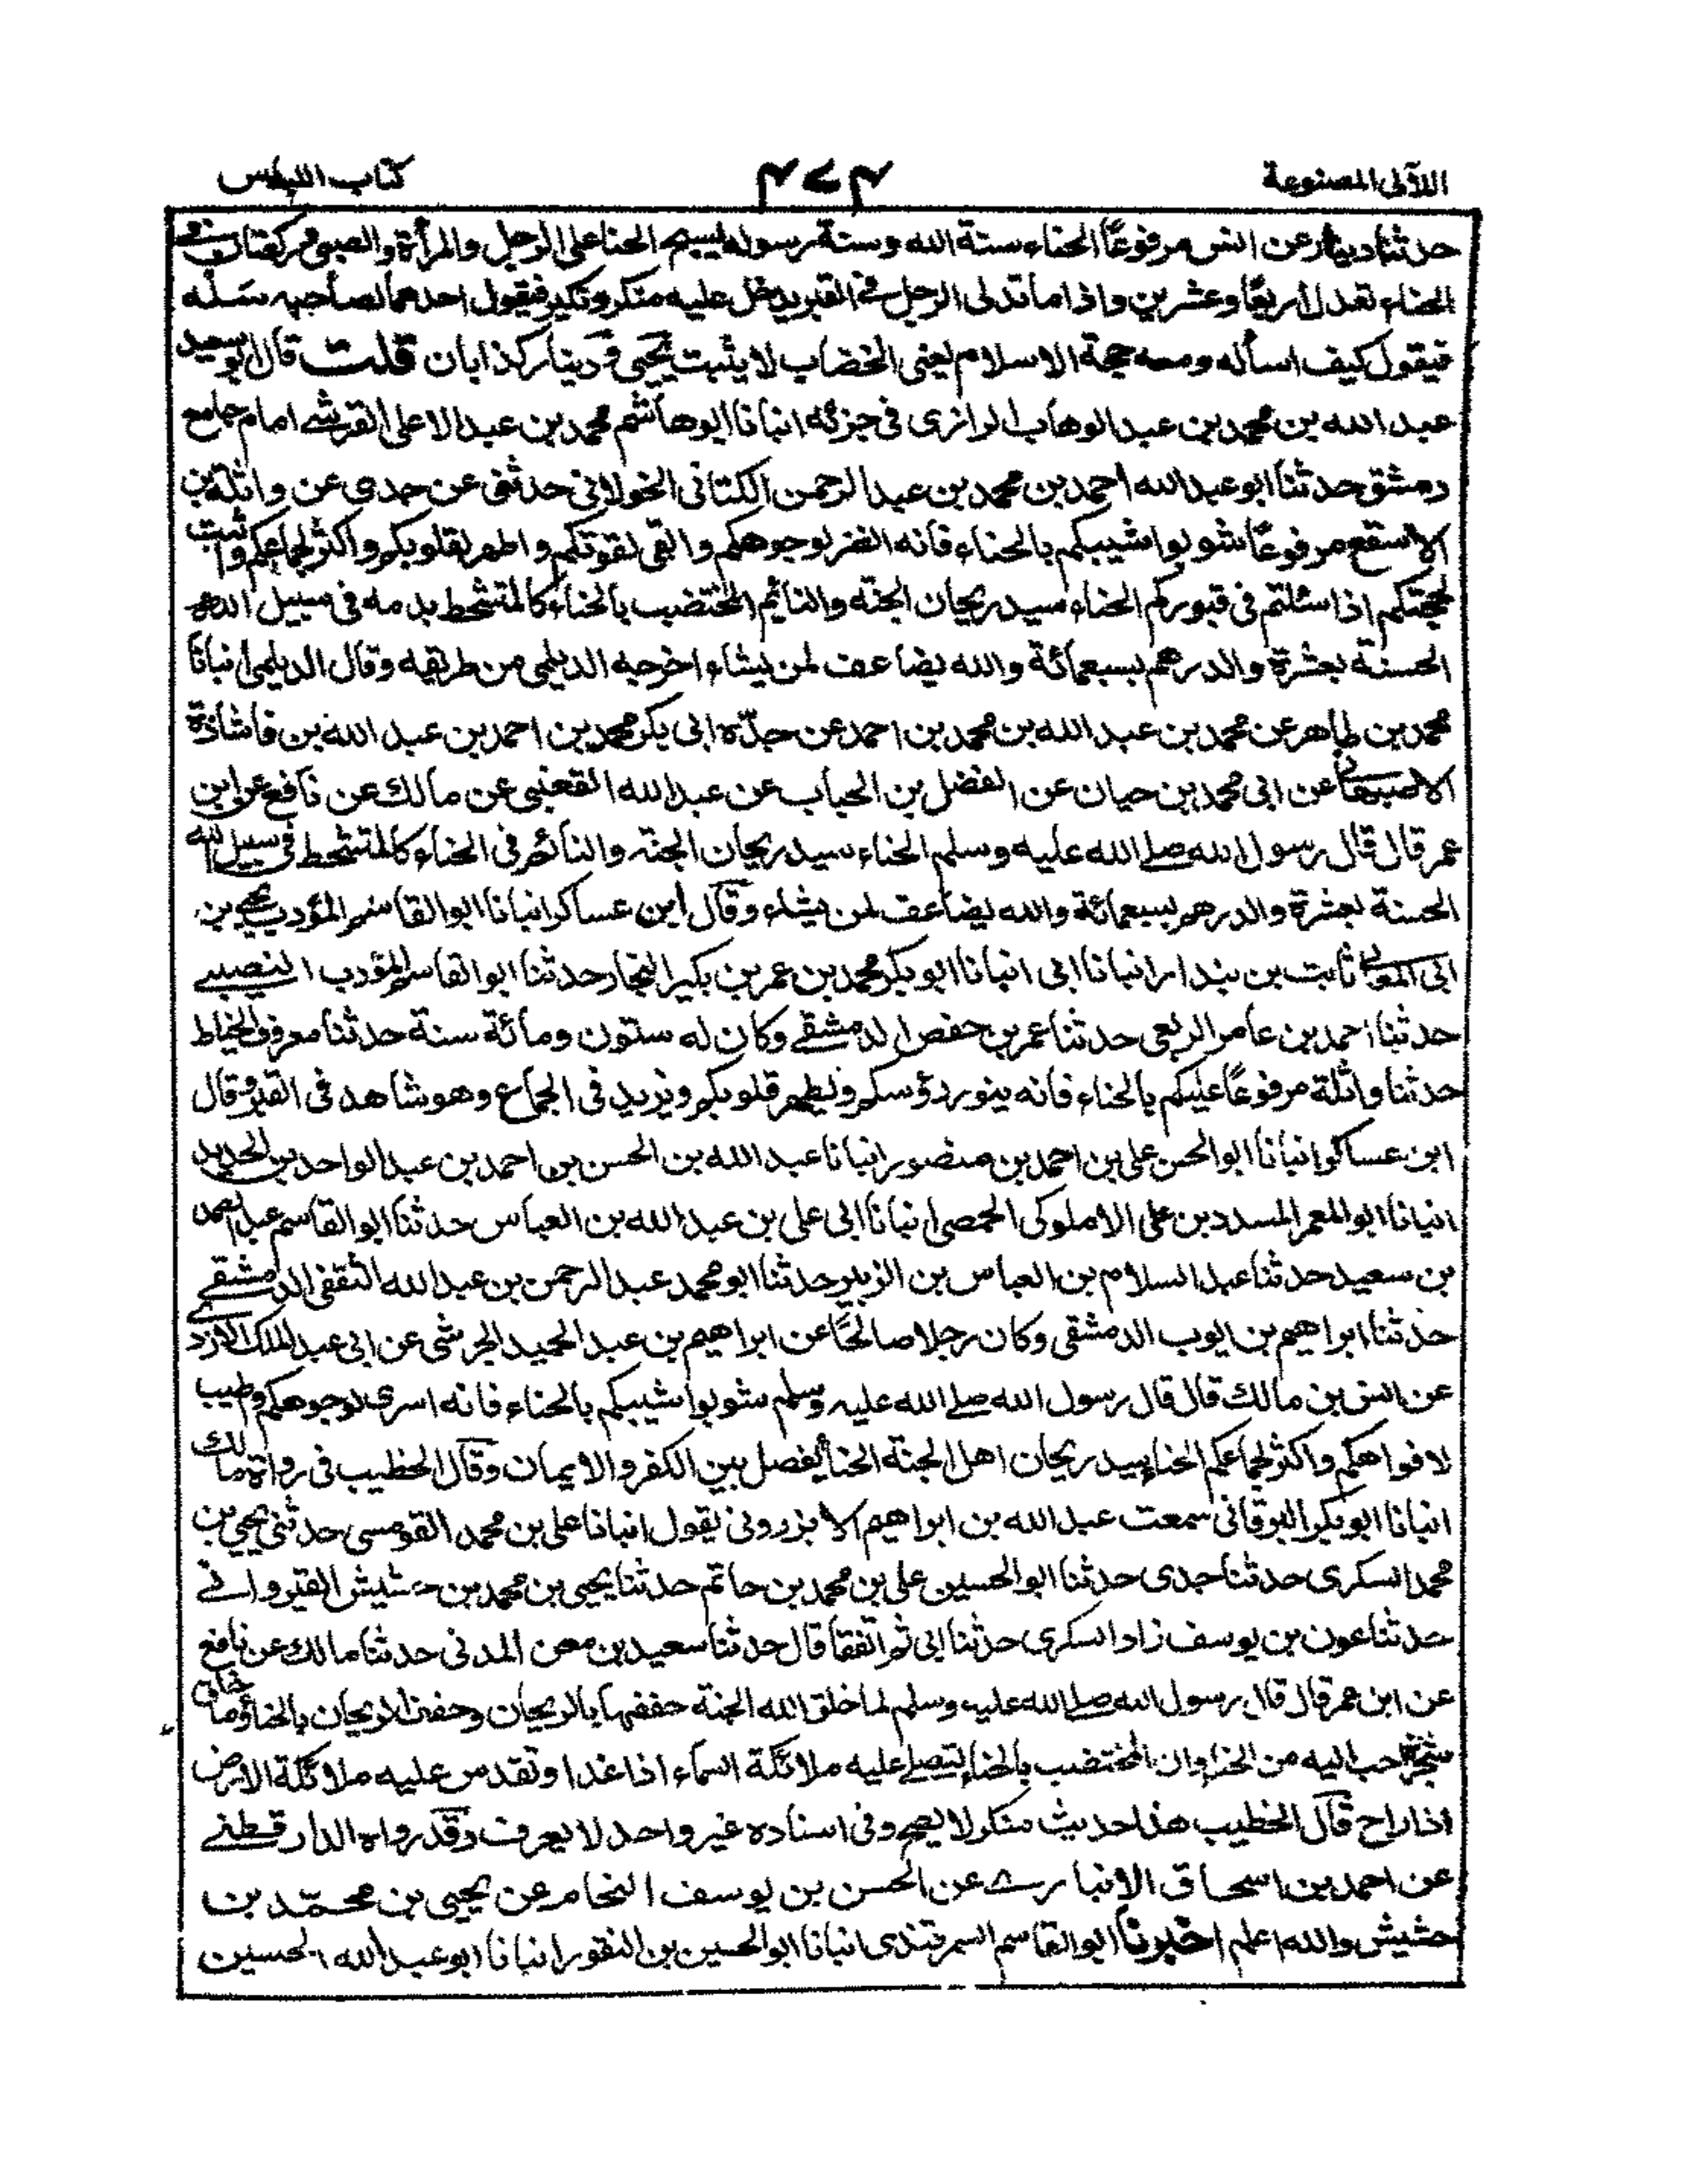 اللآلى المصنوعة ٤٧٤ كتاب اللباس
حدثنا دينار عن انس مرفوعًا الحناء سنة الله وسنة رسوله يسبح الحنا على الرجل والمرأة والصبى وركعتان فى
الحناء تعدل أربعًا وعشرين واذا ما تدلى الرجل فى القبر يدخل عليه منكر ونكير فيقول احدهما لصاحبه سَلْه
فيقول كيف اسأله ومعه حجة الاسلام يعنى الخضاب لا يثبت يحيى ودينار كذابان قلت قال ابو سعيد
عبد الله بن محمد بن عبد الوهاب الرازى فى جزئه انبانا ابو هاشم محمد بن عبد الاعلى القرشى امام جامع
دمشق حدثنا ابو عبد الله احمد بن محمد بن عبد الرحمن الكتانى الخولانى حدثنى عن جدى عن واثلة بن
الاسقع مرفوعًا شوبوا شيبكم بالحناء فانه انضر لوجوهكم والقى لقوتكم واطهر لقلوبكم واكثر لجماعكم واثبت
لحجتكم اذا سئلتم فى قبوركم الحناء سيد ريحان الجنة والنائم المختضب بالحناء كالمتشحط بدمه فى سبيل الله
الحسنة بعشرة والدرهم بسبعمائة والله يضاعف لمن يشاء اخرجه الديلمى من طريقه وقال الديلمى انبانا
محمد بن طاهر عن محمد بن عبد الله بن محمد بن احمد عن جدّه ابى بكر محمد بن احمد بن عبد الله بن فاشاذة
الاصبهانى عن ابى محمد بن حيان عن الفضل بن الحباب عن عبد الله القعنبى عن مالك عن نافع عن ابن
عمر قال قال رسول الله صلى الله عليه وسلم الحناء سيد ريحان الجنة والنائم فى الحناء كالمتشحط فى سبيل الله
الحسنة بعشرة والدرهم بسبعمائة والله يضاعف لمن يشاء وقال ابن عساكر انبانا ابو القاسم المؤدب يحيى بن
ابى المعالى ثابت بن بندار انبانا ابى انبانا ابو بكر محمد بن عمر بن بكير النجار حدثنا ابو القاسم المؤدب النصيبى
حدثنا احمد بن عامر الربعى حدثنا عمر بن حفص الدمشقى وكان له ستون ومائة سنة حدثنا معروف الخياط
حدثنا واثلة مرفوعًا عليكم بالحناء فانه ينور رؤسكم ويطهر قلوبكم ويزيد فى الجماع وهو شاهد فى القبر وقال
ابن عساكر انبانا ابو الحسن على بن احمد بن منصور انبانا عبد الله بن الحسن بن احمد بن عبد الواحد بن الحديد
انبانا ابو المعمر المسدد بن على الاملوكى الحمصى انبانا ابى على بن عبد الله بن العباس حدثنا ابو القاسم عبد الصمد
بن سعيد حدثنا عبد السلام بن العباس بن الزبير حدثنا ابو محمد عبد الرحمن بن عبد الله الثقفى الدمشقى
حدثنا ابراهيم بن ايوب الدمشقى وكان رجلا صالحًا عن ابراهيم بن عبد الحميد الجرشى عن ابى عبد الملك الازد
عن انس بن مالك قال قال رسول الله صلى الله عليه وسلم شوبوا شيبكم بالحناء فانه اسرى لوجوهكم وطيب
لافواهكم واكثر لجماعكم الحناء سيد ريحان اهل الجنة الحنا يفصل بين الكفر والايمان وقال الخطيب فى رواة مالك
انبانا ابو بكر البرقانى سمعت عبد الله بن ابراهيم الابزرونى يقول انبانا على بن محمد القومسى حدثنى يحيى بن
محمد السكرى حدثنا جدى حدثنا ابو الحسين على بن محمد بن حاتم حدثنا يحيى بن محمد بن حشيش القيروانى
حدثنا عون بن يوسف زاد السكرى حدثنا ابى ثم اتفقا قال حدثنا سعيد بن معن المدنى حدثنا مالك عن نافع
عن ابن عمر قال قال رسول الله صلى الله عليه وسلم لما خلق الله الجنة حففها بالريحان وحفف الريحان بالحناء وما خلق
شجرة احب اليه من الحناء وان المختضب بالحناء لتصلى عليه ملائكة السماء اذا غدا وتقدس عليه ملائكة الارض
اذا راح قال الخطيب هذا حديث منكر لا يصح وفى اسناده غير واحد لا يعرف وقد رواه الدارقطنى
عن احمد بن اسحاق الانبارى عن الحسن بن يوسف النحام عن يحيى بن محمّد بن
حشيش والله اعلم اخبرنا ابو القاسم السمرقندى انبانا ابو الحسين بن النقور انبانا ابو عبد الله الحسين